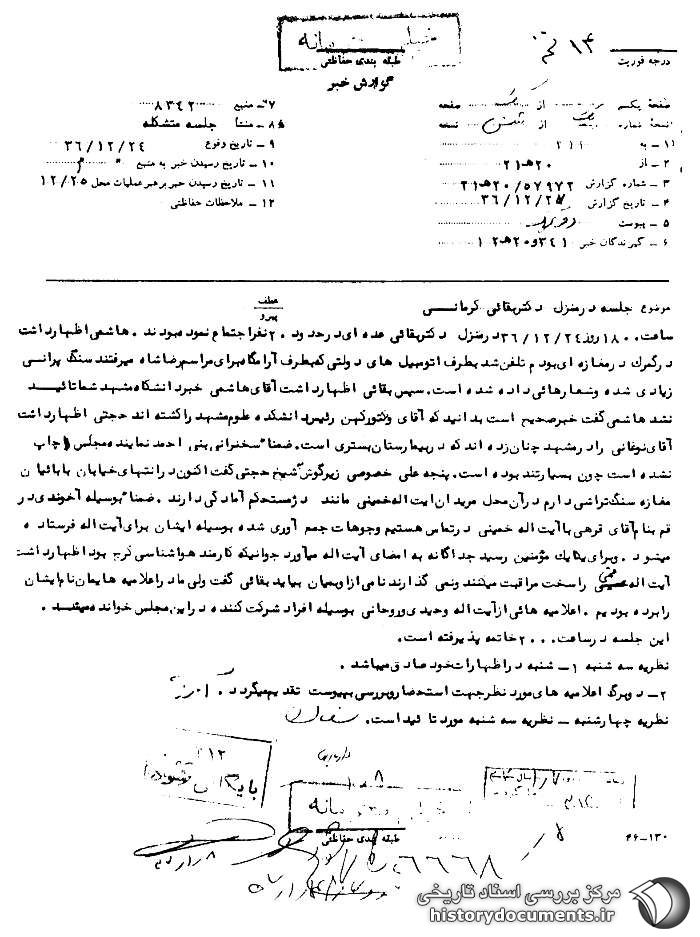 خیلی محرمانه
طبقه بندی حفاظتی
گزارش خبر
درجه فوریت
صفحه یکسم از یک صفحه
نسخه شماره یک از شش نسخه
۱ـ به ۲۱۱
۲ـ از ۲۰هـ۲۱
۳ـ شماره گزارش ۲۱هـ۲۰/۵۷۹۷۲
۴ـ تاریخ گزارش ۳۶/۱۲/۲۷
۵ـ پیوست
۶ـ گیرندگان خبر ۳۴۱و۲۰هـ۱۲
۷ـ منبع ۸۳۴۲
۸ـ منشأ جلسه متشکله
۹ـ تاریخ وقوع ۳۶/۱۲/۲۴
۱۰ـ تاریخ رسیدن خبر به منبع
۱۱ـ تاریخ رسیدن خبر برهبر عملیات محل ۱۲/۲۵
۱۲ـ ملاحظات حفاظتی
موضوع جلسه در منزل دکتر بقائی کرمانی
عطف
پیرو
ساعت ۱۸۰۰ روز ۳۶/۱۲/۲۴ در منزل دکتر بقائی عده ای در حدود ۲۰ نفر اجتماع نموده بودند. هاشمی اظهار داشت
در گمرک در مغازه ای بودم تلفن شد بطرف اتومبیل های دولتی که بطرف آرامگاه برای مراسم رضا شاه میرفتند سنگ پرانی
زیادی شده و شعارهائی داده شده است. سپس بقائی اظهار داشت آقای هاشمی خبر دانشگاه مشهد شما تائید
نشد هاشمی گفت خبر صحیح است بدانید که آقای ویکتور کهن رئیس دانشکده علوم مشهد را کشته اند حجتی اظهار داشت
آقای نوغانی را در مشهد چنان زده اند که در بیمارستان بستری است. ضمناً سخنرانی بنی احمد نماینده مجلس را چاپ
نشده است چون بسیار تند بوده است. پنجه علی خصوصی زیر گوش شیخ حجتی گفت اکنون در انتهای خیابان بابائیان
مغازه سنگ تراشی دارم در آن محل مریدان ایت اله خمینی مانند دژ مستحکم آمادگی دارند. ضمناً بوسیله آخوندی در
قم بنام آقای قرهی با آیت اله خمینی در تماس هستیم وجوهات جمع آوری شده بوسیله ایشان برای آیت اله فرستاده
میشود. و برای یکایک مؤمنین رسید جداگانه به امضای آیت اله میآورد جوانیکه کارمند هواشناسی کرج بود اظهار داشت
آیت اله قمی را سخت مراقبت میکنند ونمی گذارند نامی از او بمیان بیاید بقائی گفت ولی ما در اعلامیه هایمان نام ایشان
را برده بودیم. اعلامیه هائی از آیت اله وحیدی و روحانی بوسیله افراد شرکت کننده در این مجلس خوانده میشد.
این جلسه در ساعت ۲۰۰۰ خاتمه پذیرفته است.
نظریه سه شنبه ۱ـ شنبه در اظهارات خود صادق میباشد.
۲ـ دو برگ اعلامیه های مورد نظر جهت استحضار و بررسی بپیوست تقدیم میگردد.
نظریه چهارشنبه ـ نظریه سه شنبه مورد تائید است.
۳۱۲
بایگانی شود
خیلی محرمانه
طبقه بندی حفاظتی
۴۶ـ۱۳۰
مرکز بررسی اسناد تاریخی
historydocuments.ir